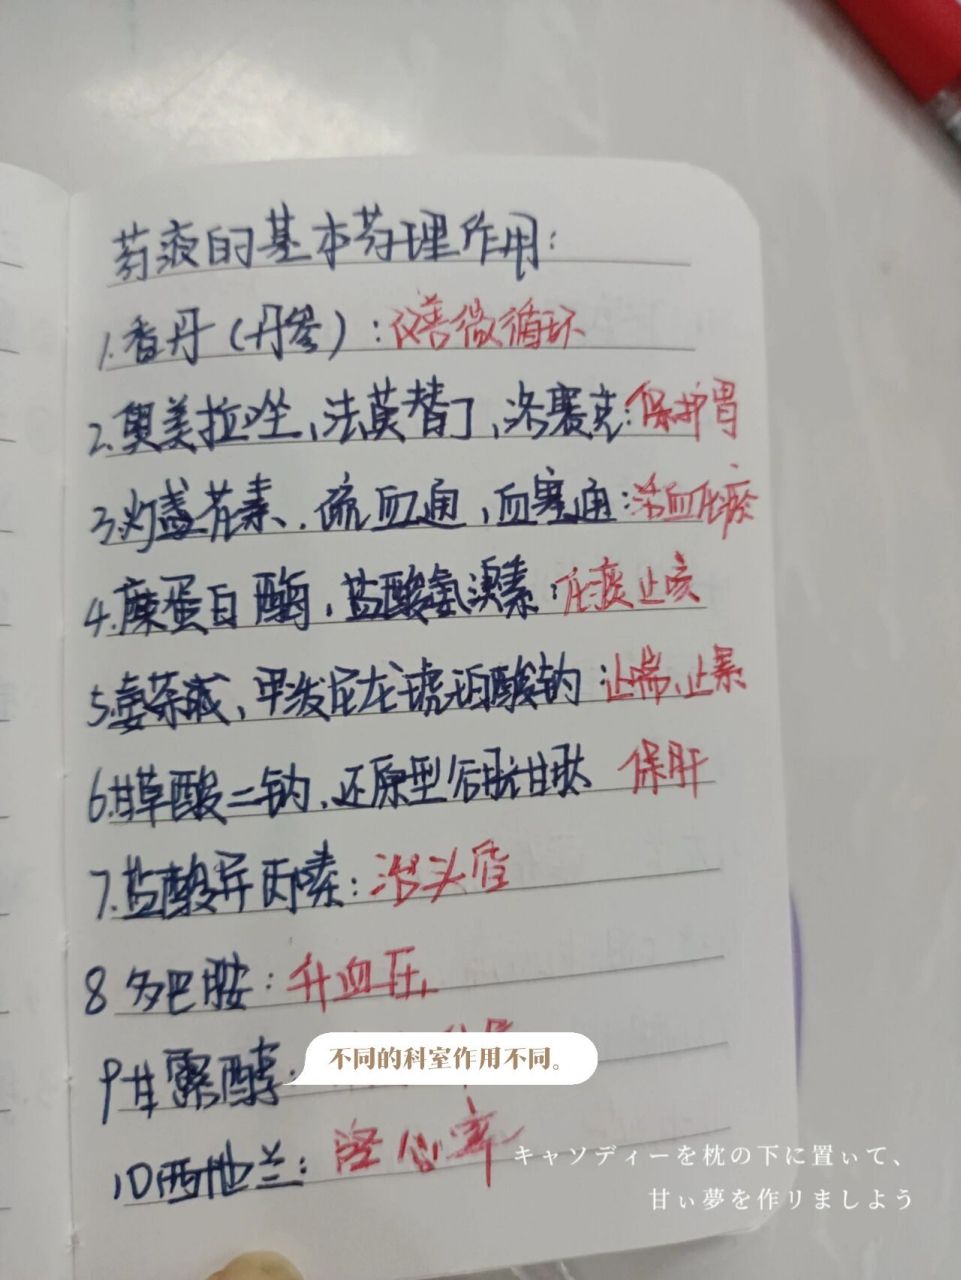 药液的基本药理作用：
1.香丹（丹参）：改善微循环
2.奥美拉唑、法莫替丁、洛赛克：保护胃
3.灯盏花素、疏血通，血塞通：活血化瘀
4.糜蛋白酶，盐酸氨溴素：化痰止咳
5.姜茶碱、甲泼尼龙琥珀酸钠：止喘、止素
6.甘草酸二钠、还原型谷胱甘肽 保肝
7.盐酸异丙嗪：治头晕
8 多巴胺：升血压
9甘露醇：
不同的科室作用不同。
10西地兰：降心率
キャソディーを枕の下に置ぃて、
甘ぃ夢を作リましよう